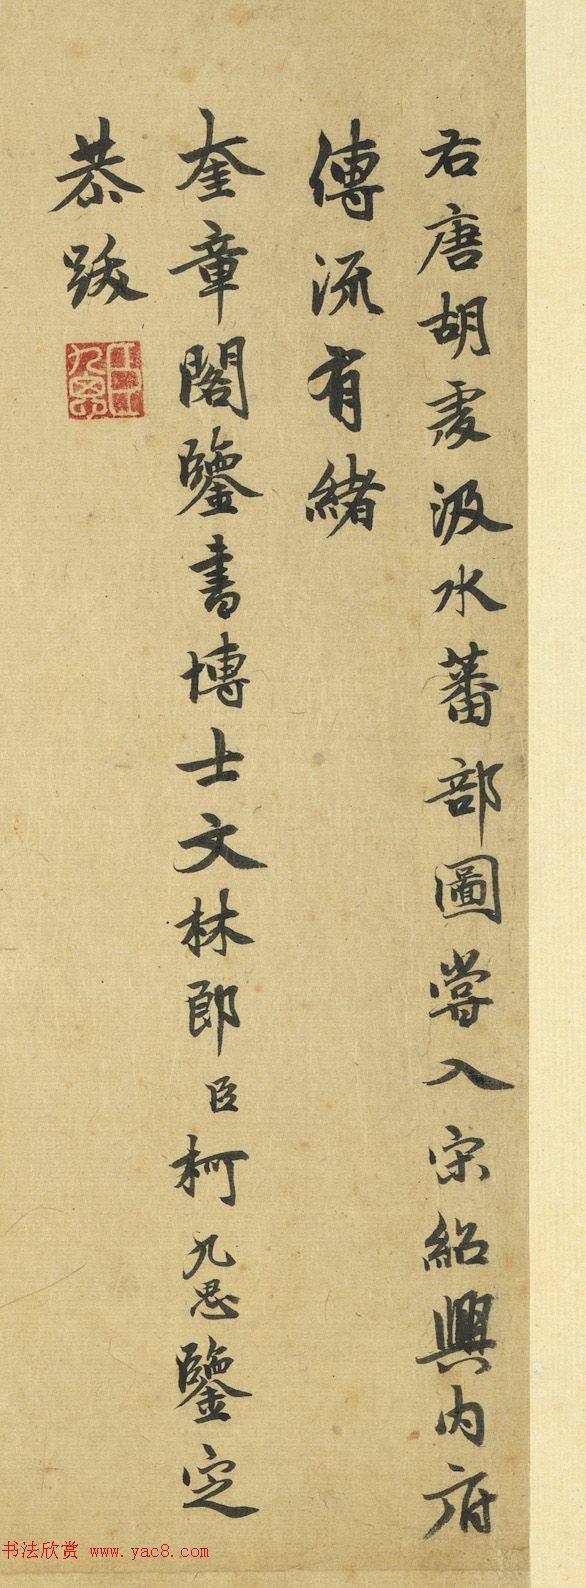 右唐胡虔汲水蕃部圖嘗入宋紹興內府
傳流有緒
奎章閣鑒書博士文林郎臣柯九思鑒定
恭跋
书法欣赏 www.yac8.com